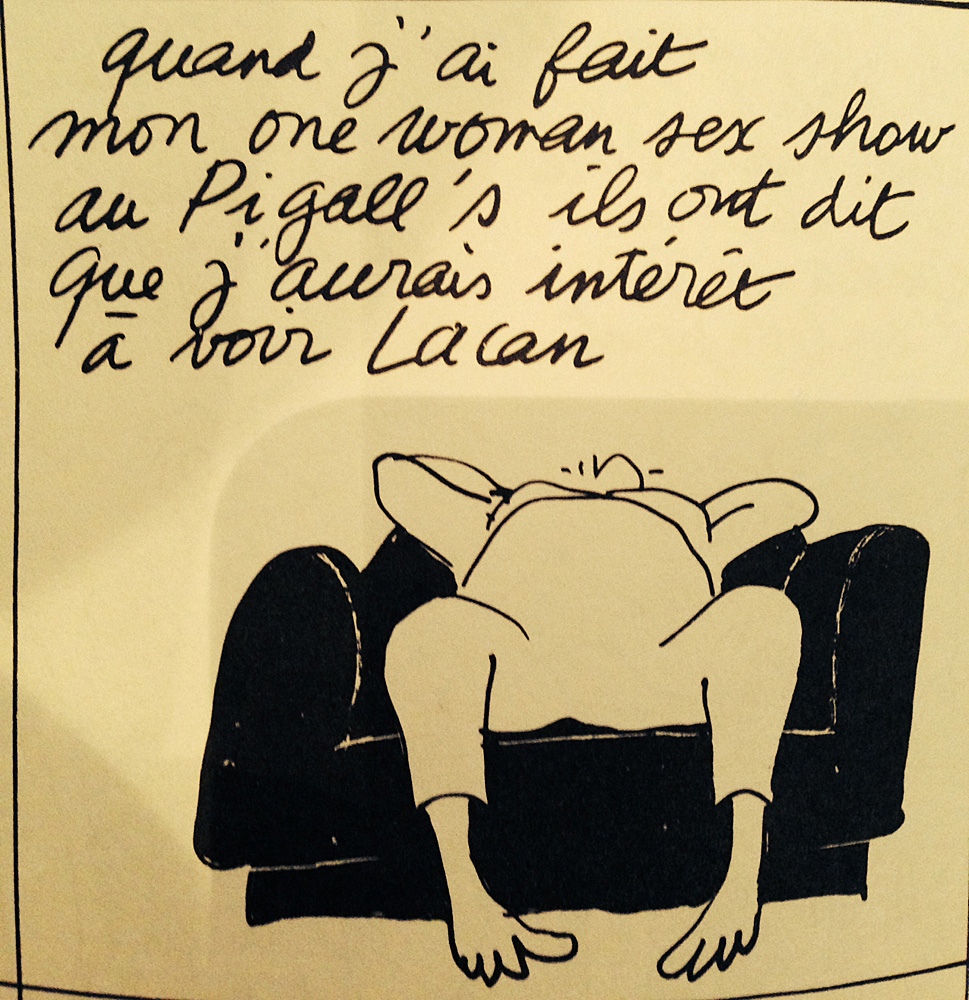 quand j'ai fait
mon one woman sex show
au Pigall's ils ont dit
que j'aurais intérêt
à voir Lacan